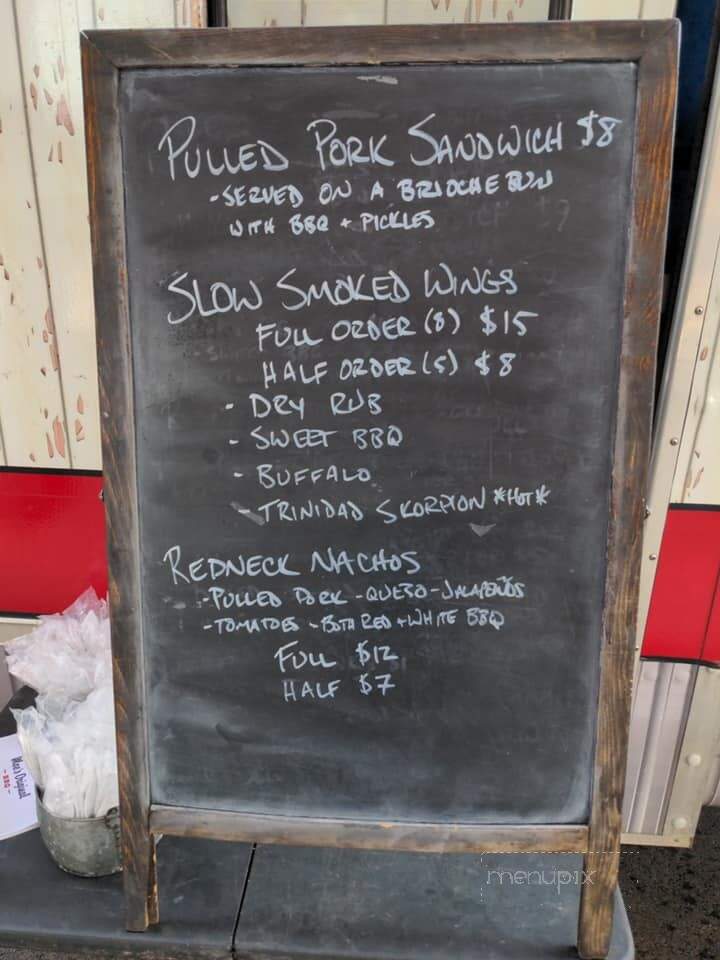 PULLED PORK SANDWICH $8
-SERVED ON A BRIOCHE BUN
WITH BBQ + PICKLES
SLOW SMOKED WINGS
FULL ORDER (8) $15
HALF ORDER (5) $8
- DRY RUB
- SWEET BBQ
- BUFFALO
- TRINIDAD SKORPION *HOT*
REDNECK NACHOS
-PULLED PORK -QUESO -JALAPEÑOS
-TOMATOES -BOTH RED + WHITE BBQ
FULL $12
HALF $7
Moe's Original
- BBQ -
menupix